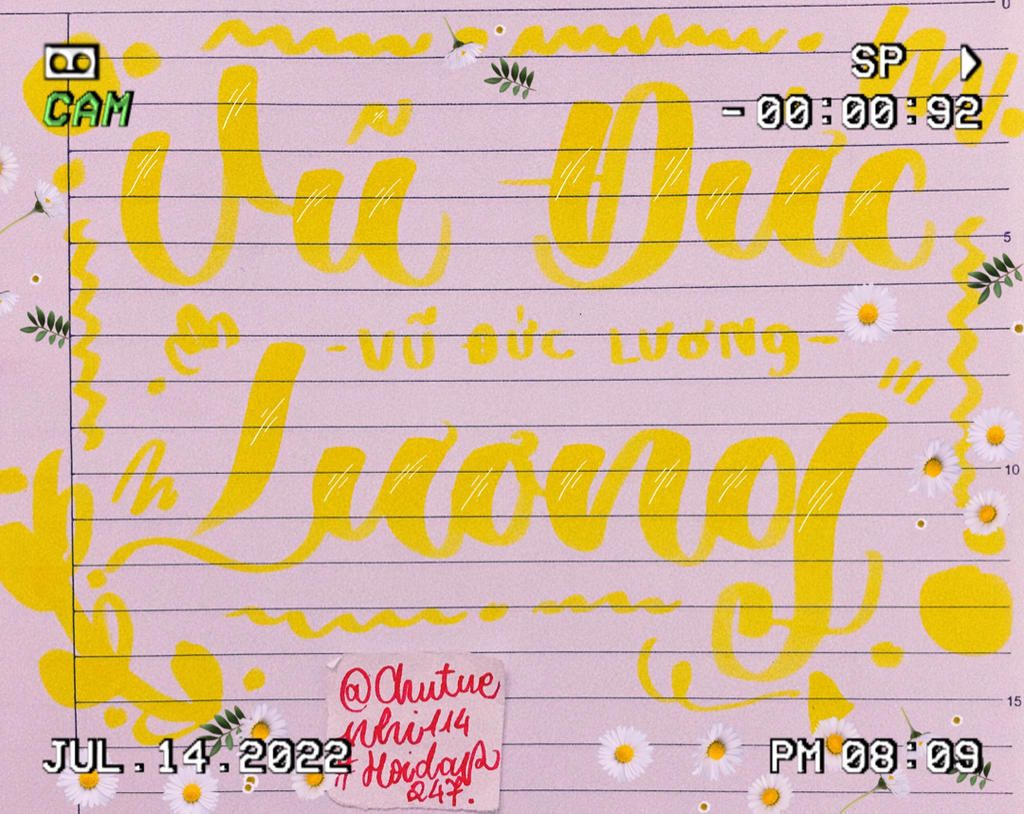 SP
CAM
-00:00:92
0
Vũ Đức
5
-VŨ ĐỨC LƯƠNG-
Lương
10
15
@Chutue
nhi114
#Hoidap
247.
JUL.14.2022
PM 08:09